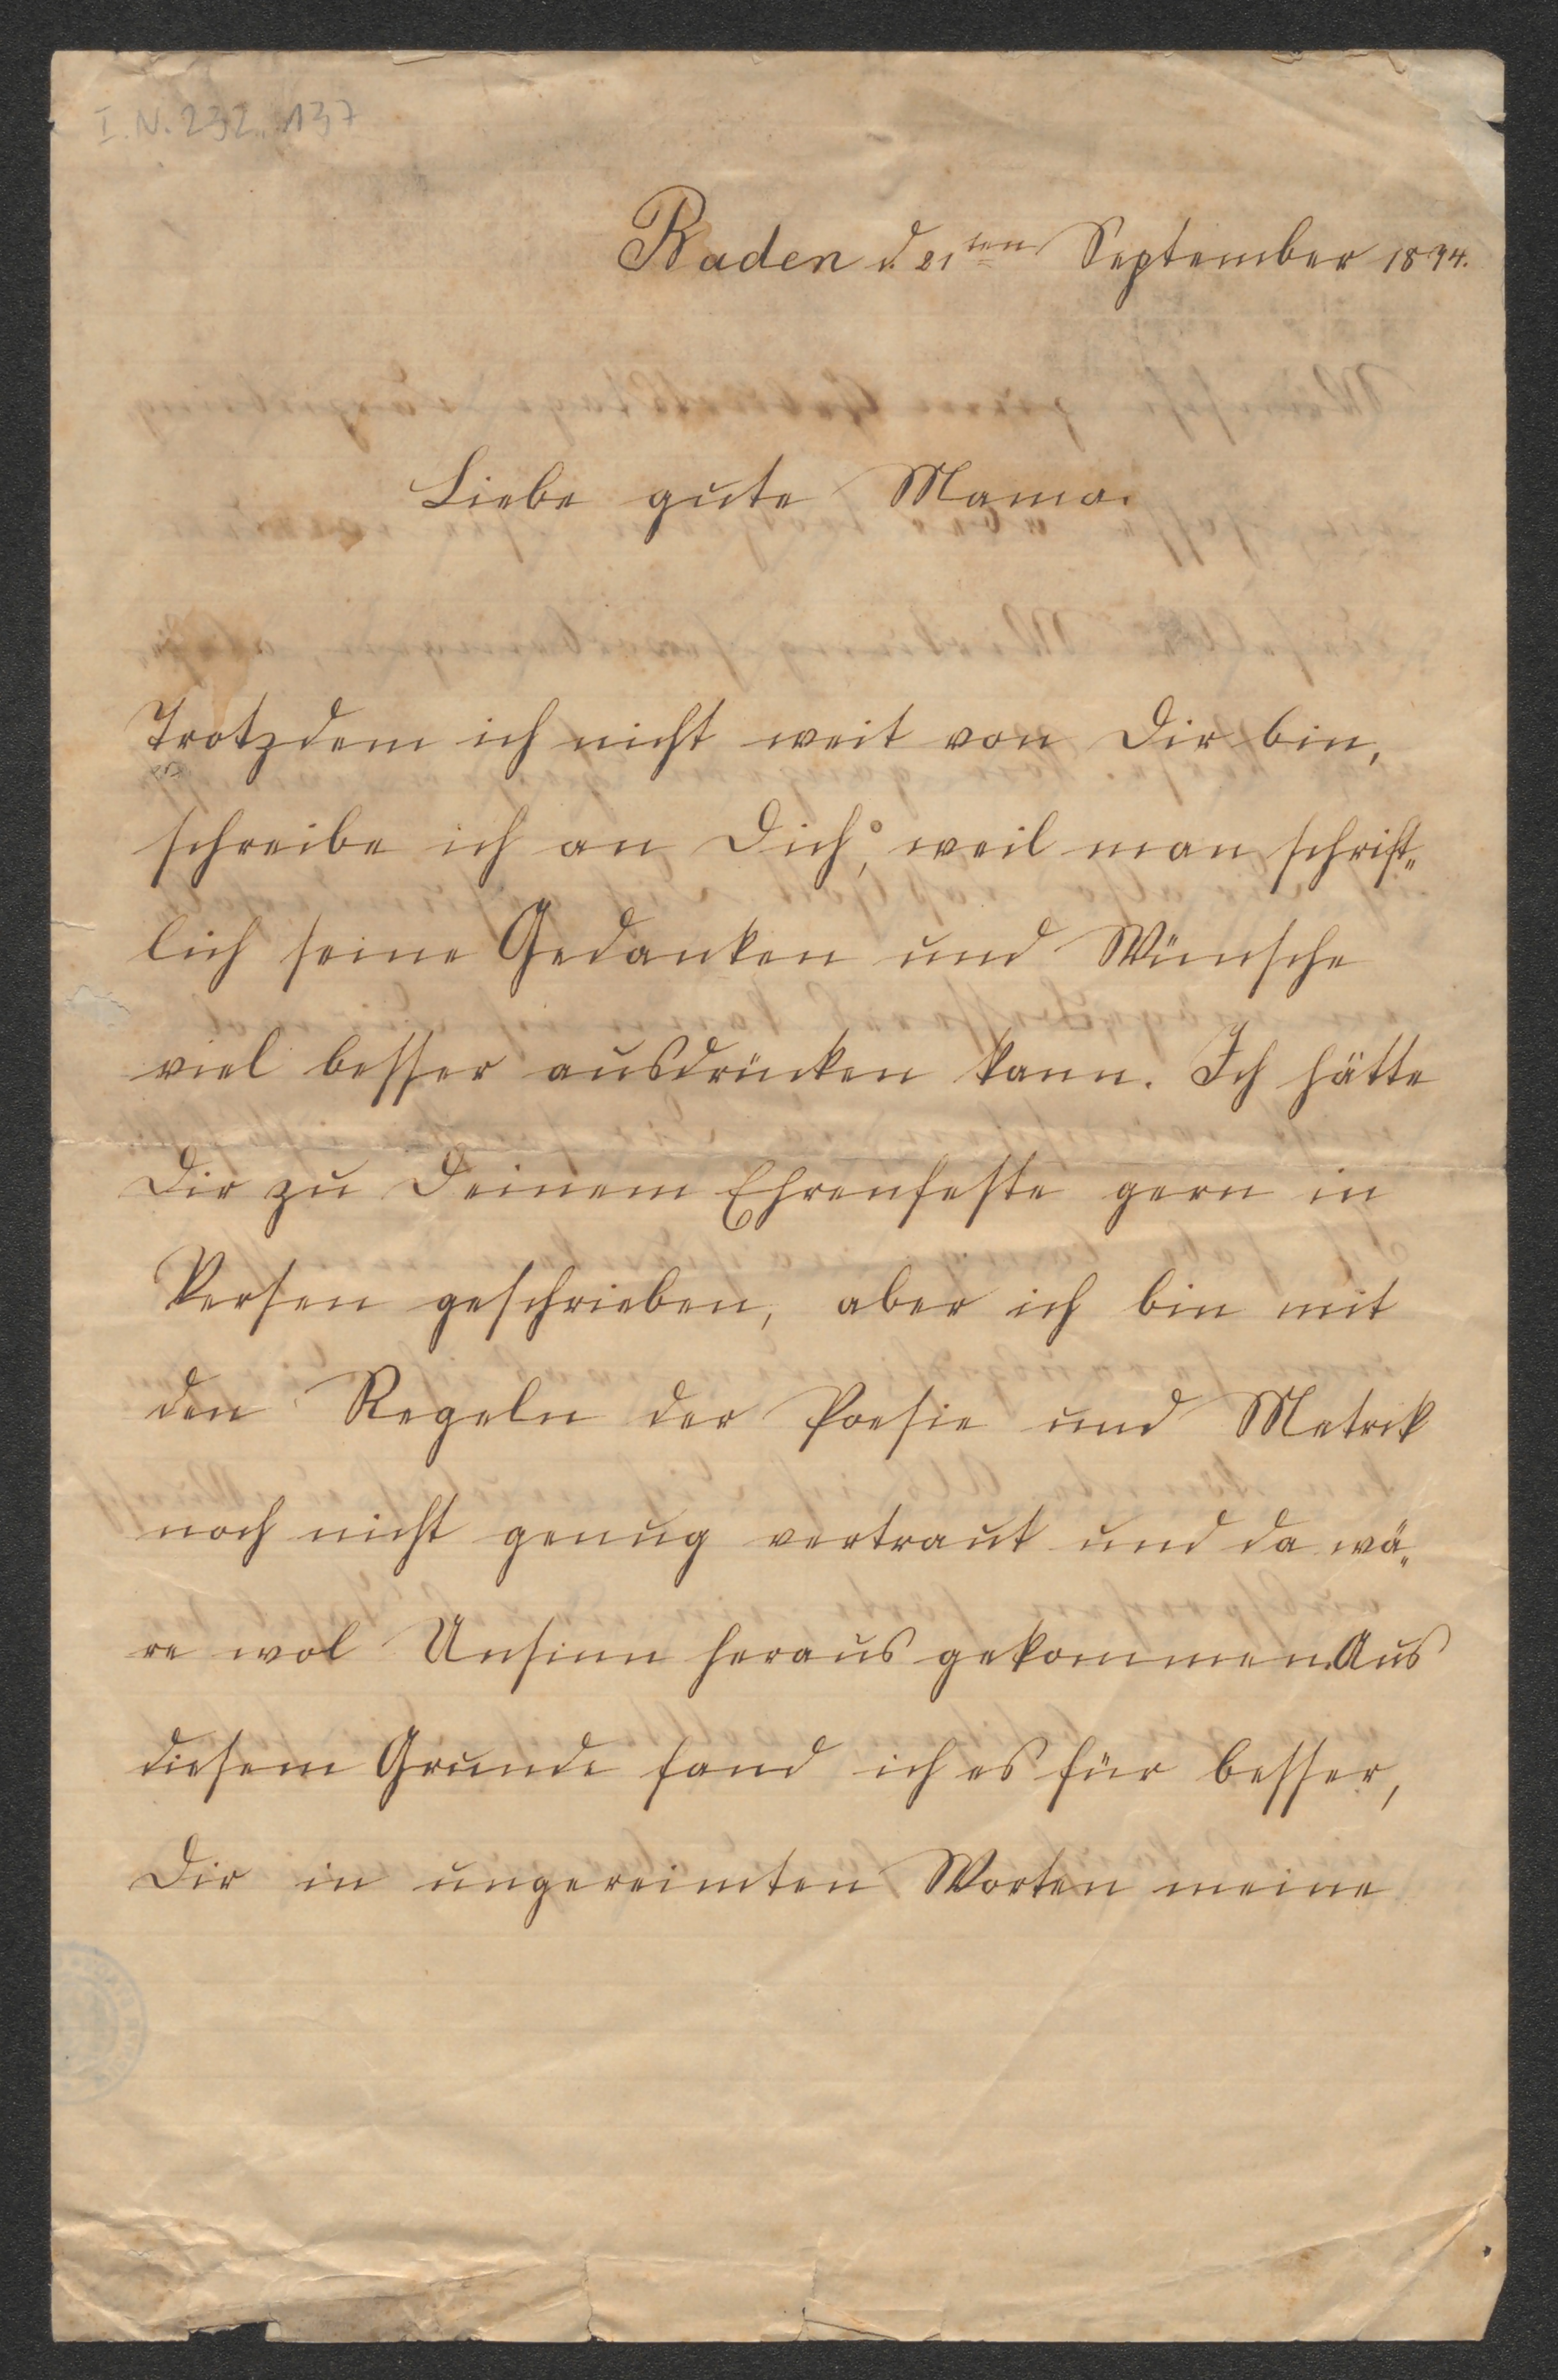 I.N. 232.137
Baden d. 21ten September 1894.
Liebe gute Mama.
Trotzdem ich nicht weit von Dir bin,
schreibe ich an Dich, weil man schrift„
lich seine Gedanken und Wünsche
viel besser ausdrücken kann. Ich hätte
Dir zu Deinem Ehrenfeste gern in
Versen geschrieben, aber ich bin mit
den Regeln der Poesie und Metrik
noch nicht genug vertraut und da wä„
re wol Unsinn heraus gekommen. Aus
diesem Grunde fand ich es für besser,
Dir in ungereimten Worten meine